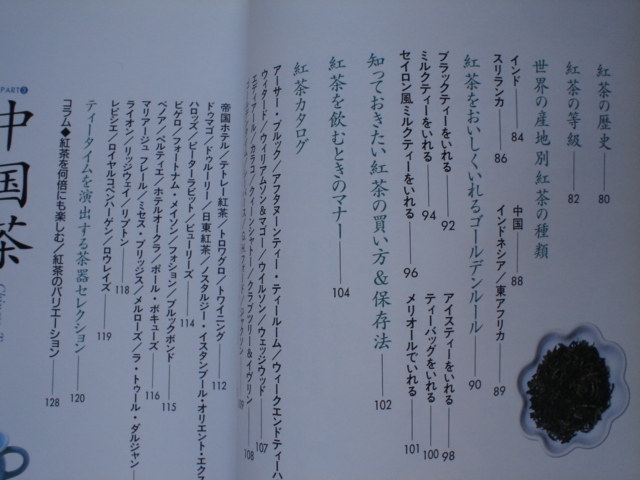 紅茶の歴史 80
紅茶の等級 82
世界の産地別紅茶の種類
インド 84
スリランカ 86
中国 88
インドネシア/東アフリカ 89
紅茶をおいしくいれるゴールデンルール 90
ブラックティーをいれる 92
ミルクティーをいれる 94
セイロン風ミルクティーをいれる 96
アイスティーをいれる 98
ティーバッグをいれる 100
メリオールでいれる 101
知っておきたい紅茶の買い方&保存法 102
紅茶を飲むときのマナー 104
紅茶カタログ
アーサー・ブルック/アフタヌーンティー・ティールーム/ウィークエンドティーハ
ウィタード/ウィリアムソン&マゴー/ウイルソン/ウェッジウッド 107
クラブツリー&イヴリン 108
109
帝国ホテル/テトレー紅茶/トワログロ/トワイニング 112
ドゥマゴ/ドゥルーリー/日東紅茶/ノスタルジー・イスタンブール・オリエント・エクス
ハロッズ/ピーターラビット/ビューリーズ 114
ビゲロ/フォートナム・メイソン/フォション/ブルックボンド 115
ベノア/ベルティエ/ホテルオークラ/ポール・ボキューズ 116
マリアージュ フレール/ミセス・ブリッジス/メルローズ/ラ・トゥール・ダルジャン
ライオン/リッジウェイ/リプトン 118
レピシエ/ロイヤルコペンハーゲン/ロウレイズ 119
ティータイムを演出する茶器セレクション 120
コラム◆紅茶を何倍にも楽しむ/紅茶のバリエーション 128
PART3
中国茶